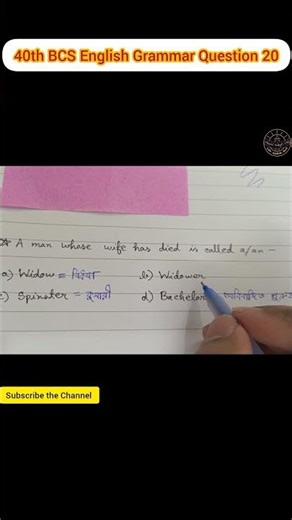 40th BCS English Grammar Question 20
* A man whose wife has died is called a/an —
a) Widow = विधवा b) Widower
c) Spinster = d) Bachelor
Subscribe the Channel